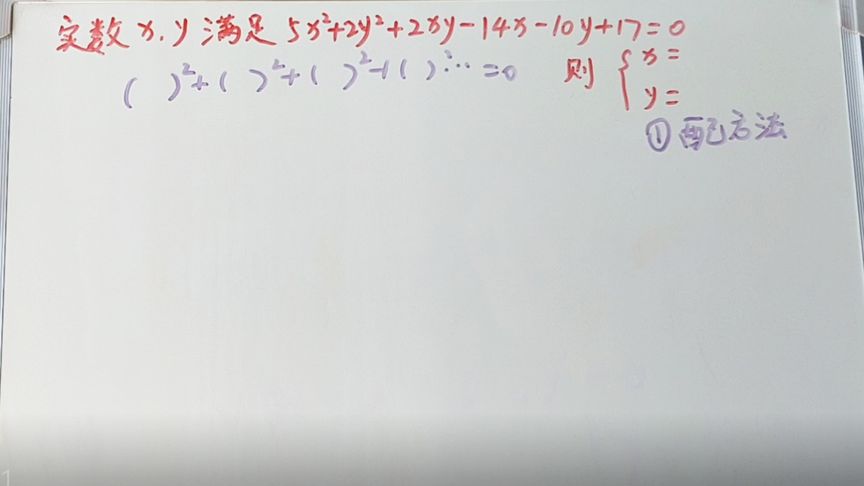 实数 x, y 满足 5x²+2y²+2xy-14x-10y+17=0
( )²+( )²+( )²+( )²… =0 则 { x=
y=
①配方法
1